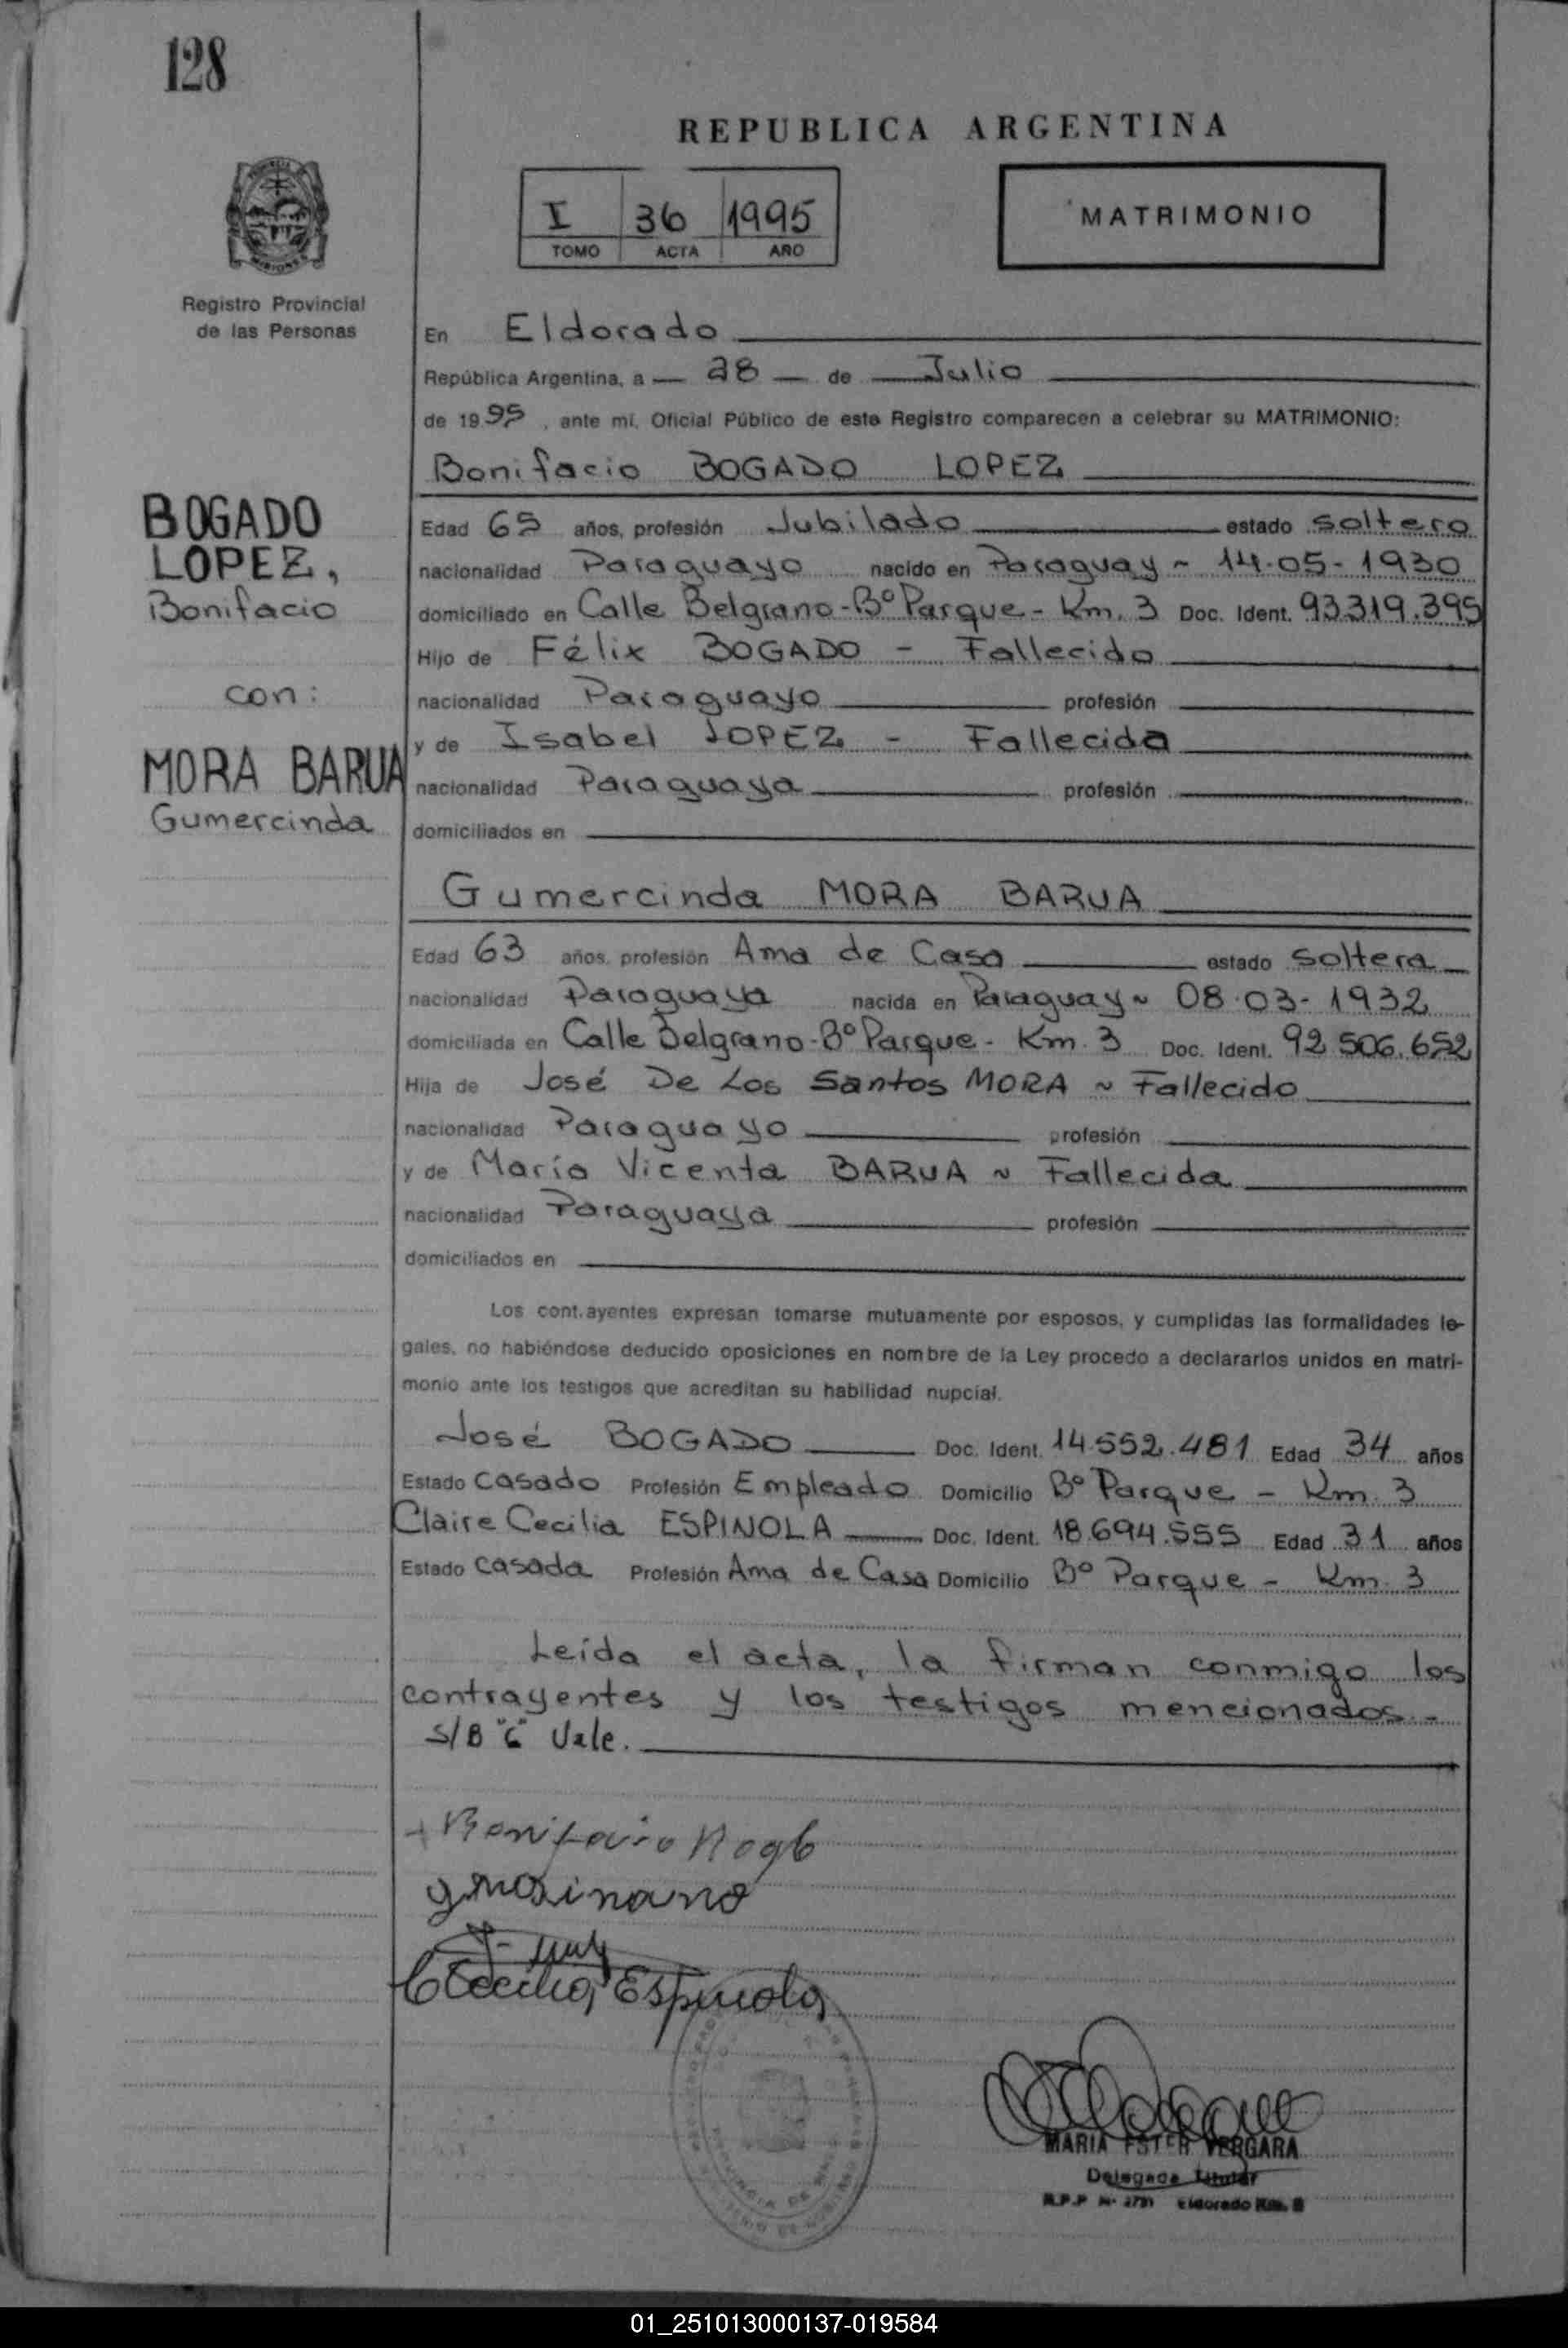 128
REPUBLICA ARGENTINA
I 36 1995
TOMO ACTA AÑO
MATRIMONIO
Registro Provincial
de las Personas
En Eldorado
República Argentina, a — 28 — de Julio
de 1995, ante mí, Oficial Público de este Registro comparecen a celebrar su MATRIMONIO:
Bonifacio BOGADO LOPEZ
BOGADO
LOPEZ,
Bonifacio
con:
MORA BARUA
Gumercinda
Edad 65 años, profesión Jubilado estado soltero
nacionalidad Paraguayo nacido en Paraguay ~ 14-05-1930
domiciliado en Calle Belgrano-Bº Parque - Km. 3 Doc. Ident. 93.319.395
Hijo de Félix BOGADO - Fallecido
nacionalidad Paraguayo profesión
y de Isabel LOPEZ - Fallecida
nacionalidad Paraguaya profesión
domiciliados en
Gumercinda MORA BARUA
Edad 63 años, profesión Ama de Casa estado soltera
nacionalidad Paraguaya nacida en Paraguay ~ 08-03-1932
domiciliada en Calle Belgrano-Bº Parque - Km. 3 Doc. Ident. 92.506.652
Hija de José De Los Santos MORA ~ Fallecido
nacionalidad Paraguayo profesión
y de María Vicenta BARUA ~ Fallecida
nacionalidad Paraguaya profesión
domiciliados en
Los cont.ayentes expresan tomarse mutuamente por esposos, y cumplidas las formalidades le-
gales, no habiéndose deducido oposiciones en nombre de la Ley procedo a declararlos unidos en matri-
monio ante los testigos que acreditan su habilidad nupcial.
José BOGADO Doc. Ident. 14.552.481 Edad 34 años
Estado casado Profesión Empleado Domicilio Bº Parque - Km. 3
Claire Cecilia ESPINOLA Doc. Ident. 18.694.555 Edad 31 años
Estado casada Profesión Ama de Casa Domicilio Bº Parque - Km. 3
Leída el acta, la firman conmigo los
contrayentes y los testigos mencionados.-
S/B "C" Vale.
Bonifacio
Cecilia Espinola
MARIA ESTER VERGARA
Delegada Titular
R.P.P Nº Eldorado Km.
01_251013000137-019584